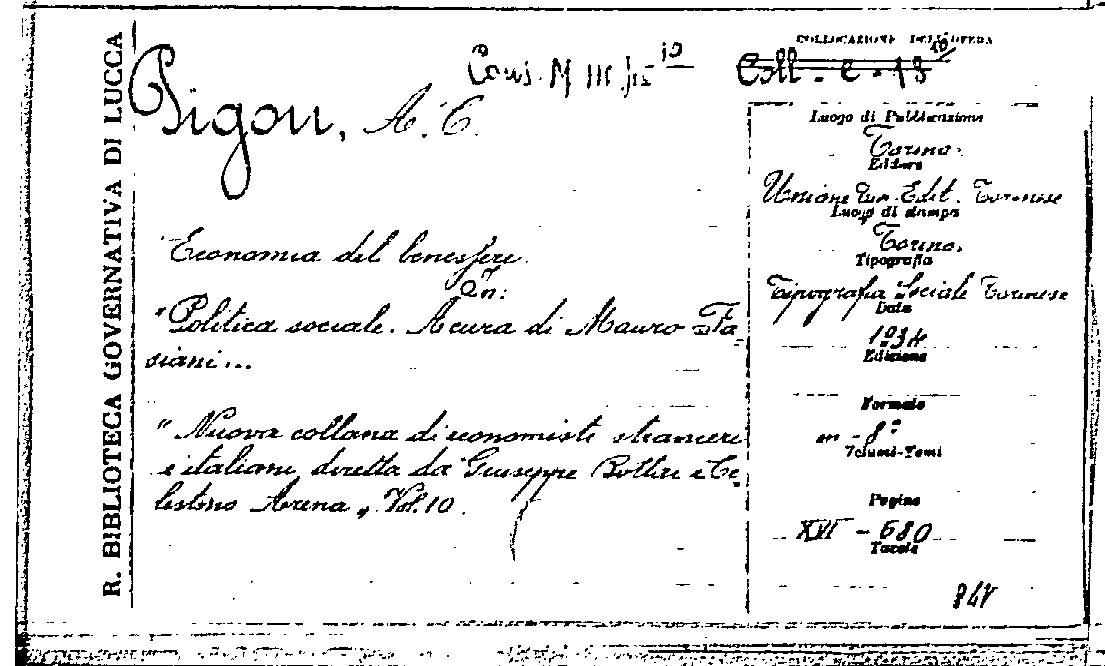 R. BIBLIOTECA GOVERNATIVA DI LUCCA
Pigou, A. C.
Cons. M III /15 10
COLLOCAZIONE DELL'OPERA
Coll - C - 13 10/
Economia del benessere.
In:
"Politica sociale. A cura di Mauro Fa-
siani...
"Nuova collana di economisti stranieri
e italiani diretta da Giuseppe Bottai e Ce-
lestino Arena„ Vol. 10.
Luogo di Pubblicazione
Torino.
Editore
Unione Tip. Edit. Torinese
Luogo di stampa
Torino.
Tipografia
Tipografia Sociale Torinese
Data
1934
Edizione
Formato
in - 8°
Volumi-Tomi
Pagine
XVI - 680
Tavole